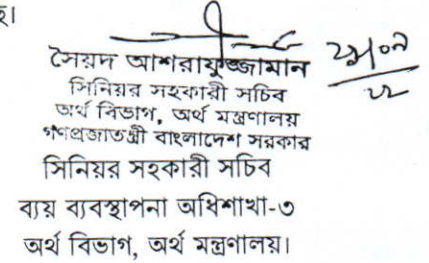 হ।
সৈয়দ আশরাফুজ্জামান
সিনিয়র সহকারী সচিব
অর্থ বিভাগ, অর্থ মন্ত্রণালয়
গণপ্রজাতন্ত্রী বাংলাদেশ সরকার
সিনিয়র সহকারী সচিব
ব্যয় ব্যবস্থাপনা অধিশাখা-৩
অর্থ বিভাগ, অর্থ মন্ত্রণালয়।